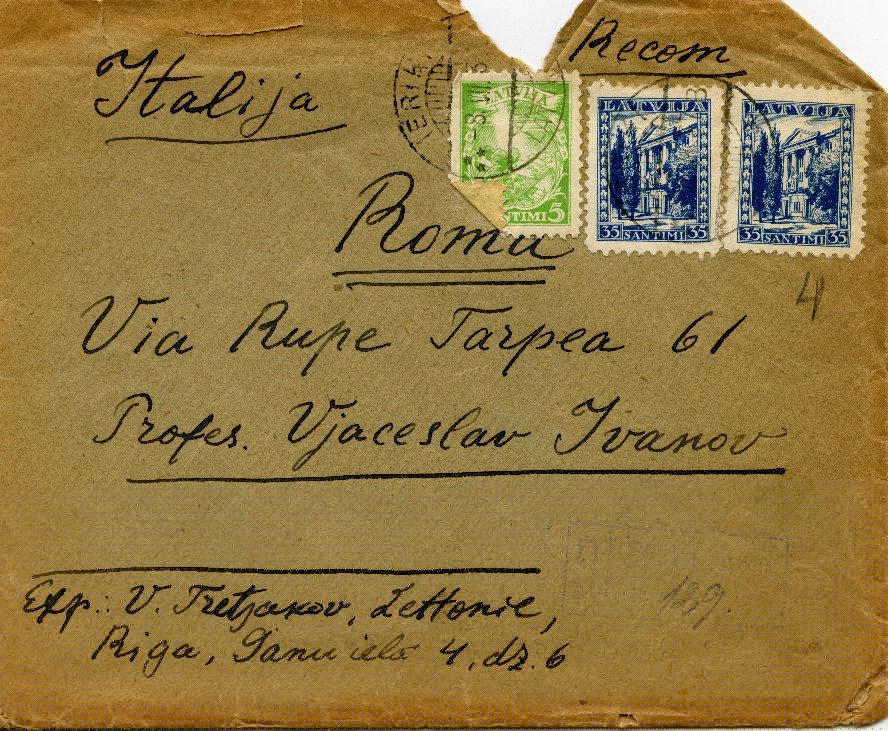 Recom
Italija
LATVIJA
5
LATVIJA
35 SANTIMI 35
LATVIJA
35 SANTIMI 35
Roma
4
Via Rupe Tarpea 61
Profes. Vjaceslav Ivanov
Exp.: V. Tretjakov, Lettonie,
Riga, 4, dz. 6